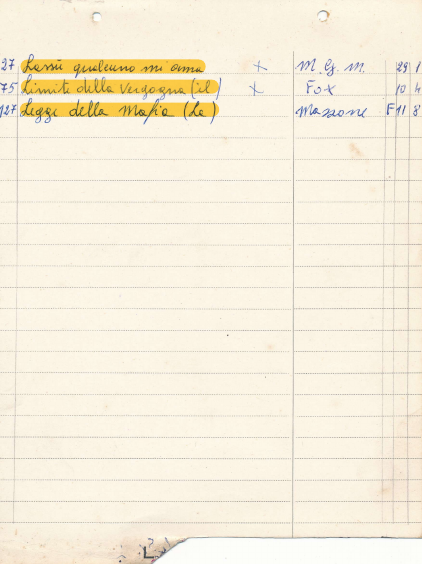 27 Lassù qualcuno mi ama x M. G. M. 29 1
75 Limite della Vergogna (il) x Fox 10 4
127 Legge della Mafia (La) Mazzone F 11 8
L